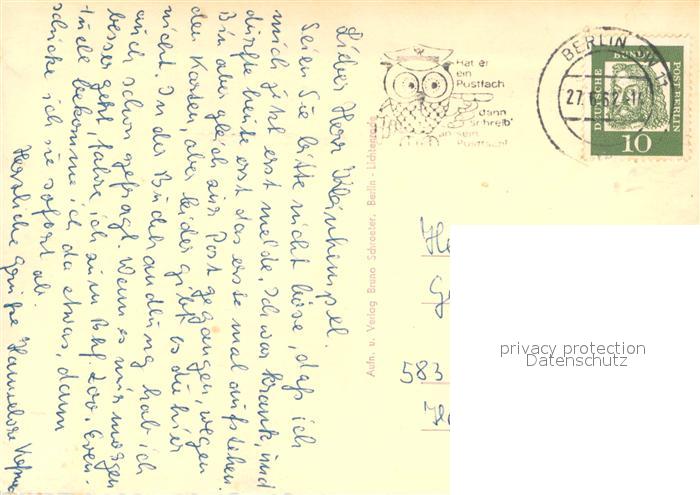 Lieber Herr Kleinhempel.
Seien Sie bitte nicht böse, daß ich
mich jetzt erst melde. Ich war krank, und
durfte heute erst das erste mal aufstehen.
Bin aber gleich zur Post gegangen, wegen
den Karten, aber leider gibt es die hier
nicht. In der Buchhandlung hab ich
auch schon gefragt. Wenn es mir morgen
besser geht, fahre ich zum Bhf. Zoo. Even-
tuell bekomme ich da etwas, dann
schicke ich sie sofort ab.
Herzliche Grüße Hannelore
Aufn. u. Verlag Bruno Schroeter, Berlin - Lichtenrade
Hat er
ein
Postfach
dann
schreib'
an sein
Postfach!
BERLIN 11
27. 6.62-17
DEUTSCHE BUNDESPOST BERLIN
10
583
privacy protection
Datenschutz